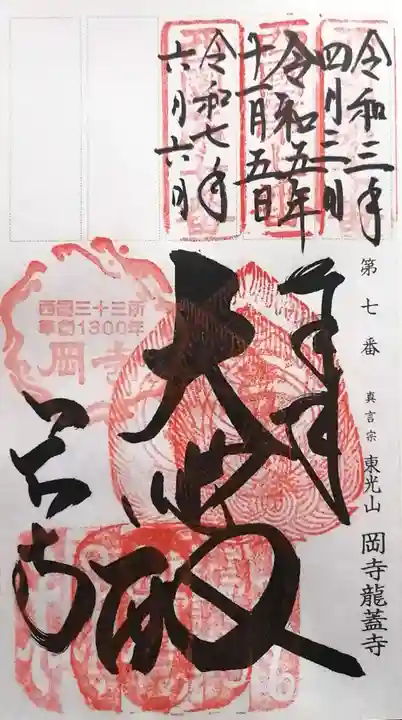 令和三年
四月三日
令和五年
十一月五日
令和七年
六月六日
第七番
真言宗 東光山 岡寺龍蓋寺
奉拝
大悲殿
岡寺
西国三十三所
草創1300年
岡寺